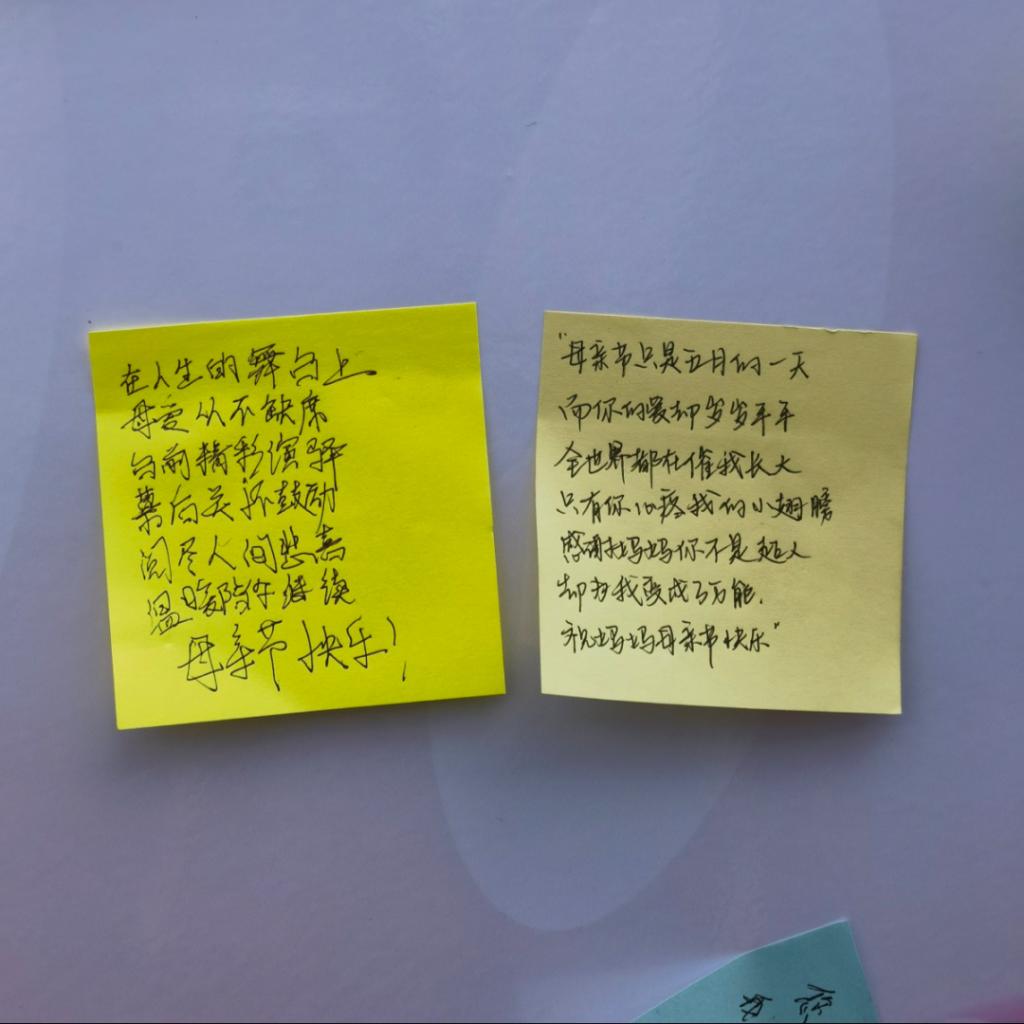 在人生的舞台上
母爱从不缺席
台前精彩演绎
幕后关怀鼓励
阅尽人间悲喜
温暖陪伴继续
母亲节快乐！
"母亲节只是五月的一天
而你的爱却岁岁年年
全世界都在催我长大
只有你心疼我的小翅膀
感谢妈妈你不是超人
却为我变成了万能.
祝妈妈母亲节快乐"
您